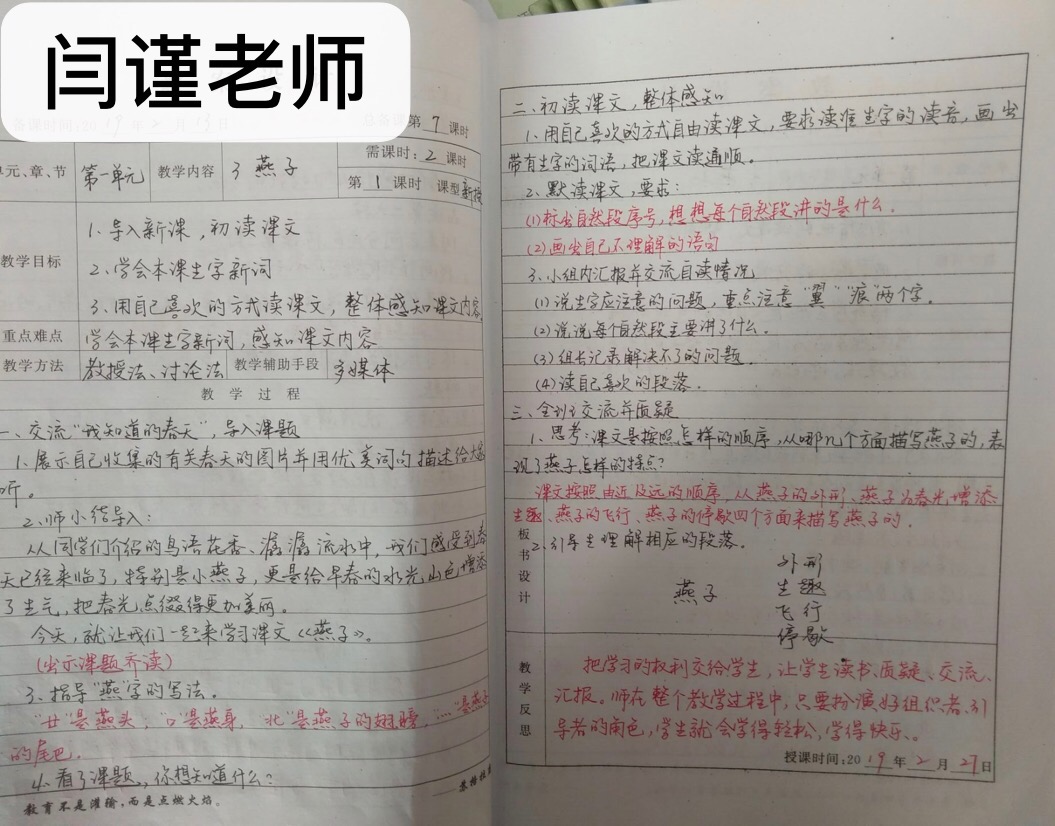 闫谨老师
备课时间:2019年2月13日
第7课时
需课时:2课时
单元、章、节 第一单元 教学内容 3 燕子
第1课时 课型 新授
教学目标
1、导入新课,初读课文
2、学会本课生字新词
3、用自己喜欢的方式读课文,整体感知课文内容
重点难点 学会本课生字新词,感知课文内容
教学方法 教授法、讨论法 教学辅助手段 多媒体
教 学 过 程
一、交流“我知道的春天”,导入课题
1、展示自己收集的有关春天的图片并用优美词句描述给大家
听。
2、师小结导入:
从同学们介绍的鸟语花香、潺潺流水中,我们感受到春
天已经来临了,特别是小燕子,更是给早春的水光山色增添
了生气,把春光点缀得更加美丽。
今天,就让我们一起来学习课文《燕子》。
(出示课题齐读)
3、指导“燕”字的写法。
“廿”是燕头;“口”是燕身,“北”是燕子的翅膀,“灬”是燕子
的尾巴。
4、看了课题,你想知道什么?
教育不是灌输,而是点燃火焰。
——苏格拉
二、初读课文,整体感知
1、用自己喜欢的方式自由读课文,要求读准生字的读音,画出
带有生字的词语,把课文读通顺。
2、默读课文,要求:
(1)标出自然段序号,想想每个自然段讲的是什么.
(2)画出自己不理解的语句
3、小组内汇报并交流自读情况
(1)说生字应注意的问题,重点注意“翼”“痕”两个字.
(2)说说每个自然段主要讲了什么.
(3)组长记录解决不了的问题.
(4)读自己喜欢的段落.
三、全班交流并质疑
1、思考:课文是按照怎样的顺序,从哪几个方面描写燕子的,表
现了燕子怎样的特点?
课文按照由近及远的顺序,从燕子的外形、燕子为春光增添
生趣、燕子的飞行、燕子的停歇四个方面来描写燕子的.
2、引导生理解相应的段落.
板书设计
外形
燕子 生趣
飞行
停歇
教学反思
把学习的权利交给学生,让学生读书、质疑、交流、
汇报。师在整个教学过程中,只要扮演好组织者、引
导者的角色,学生就会学得轻松,学得快乐。
授课时间:2019年2月27日